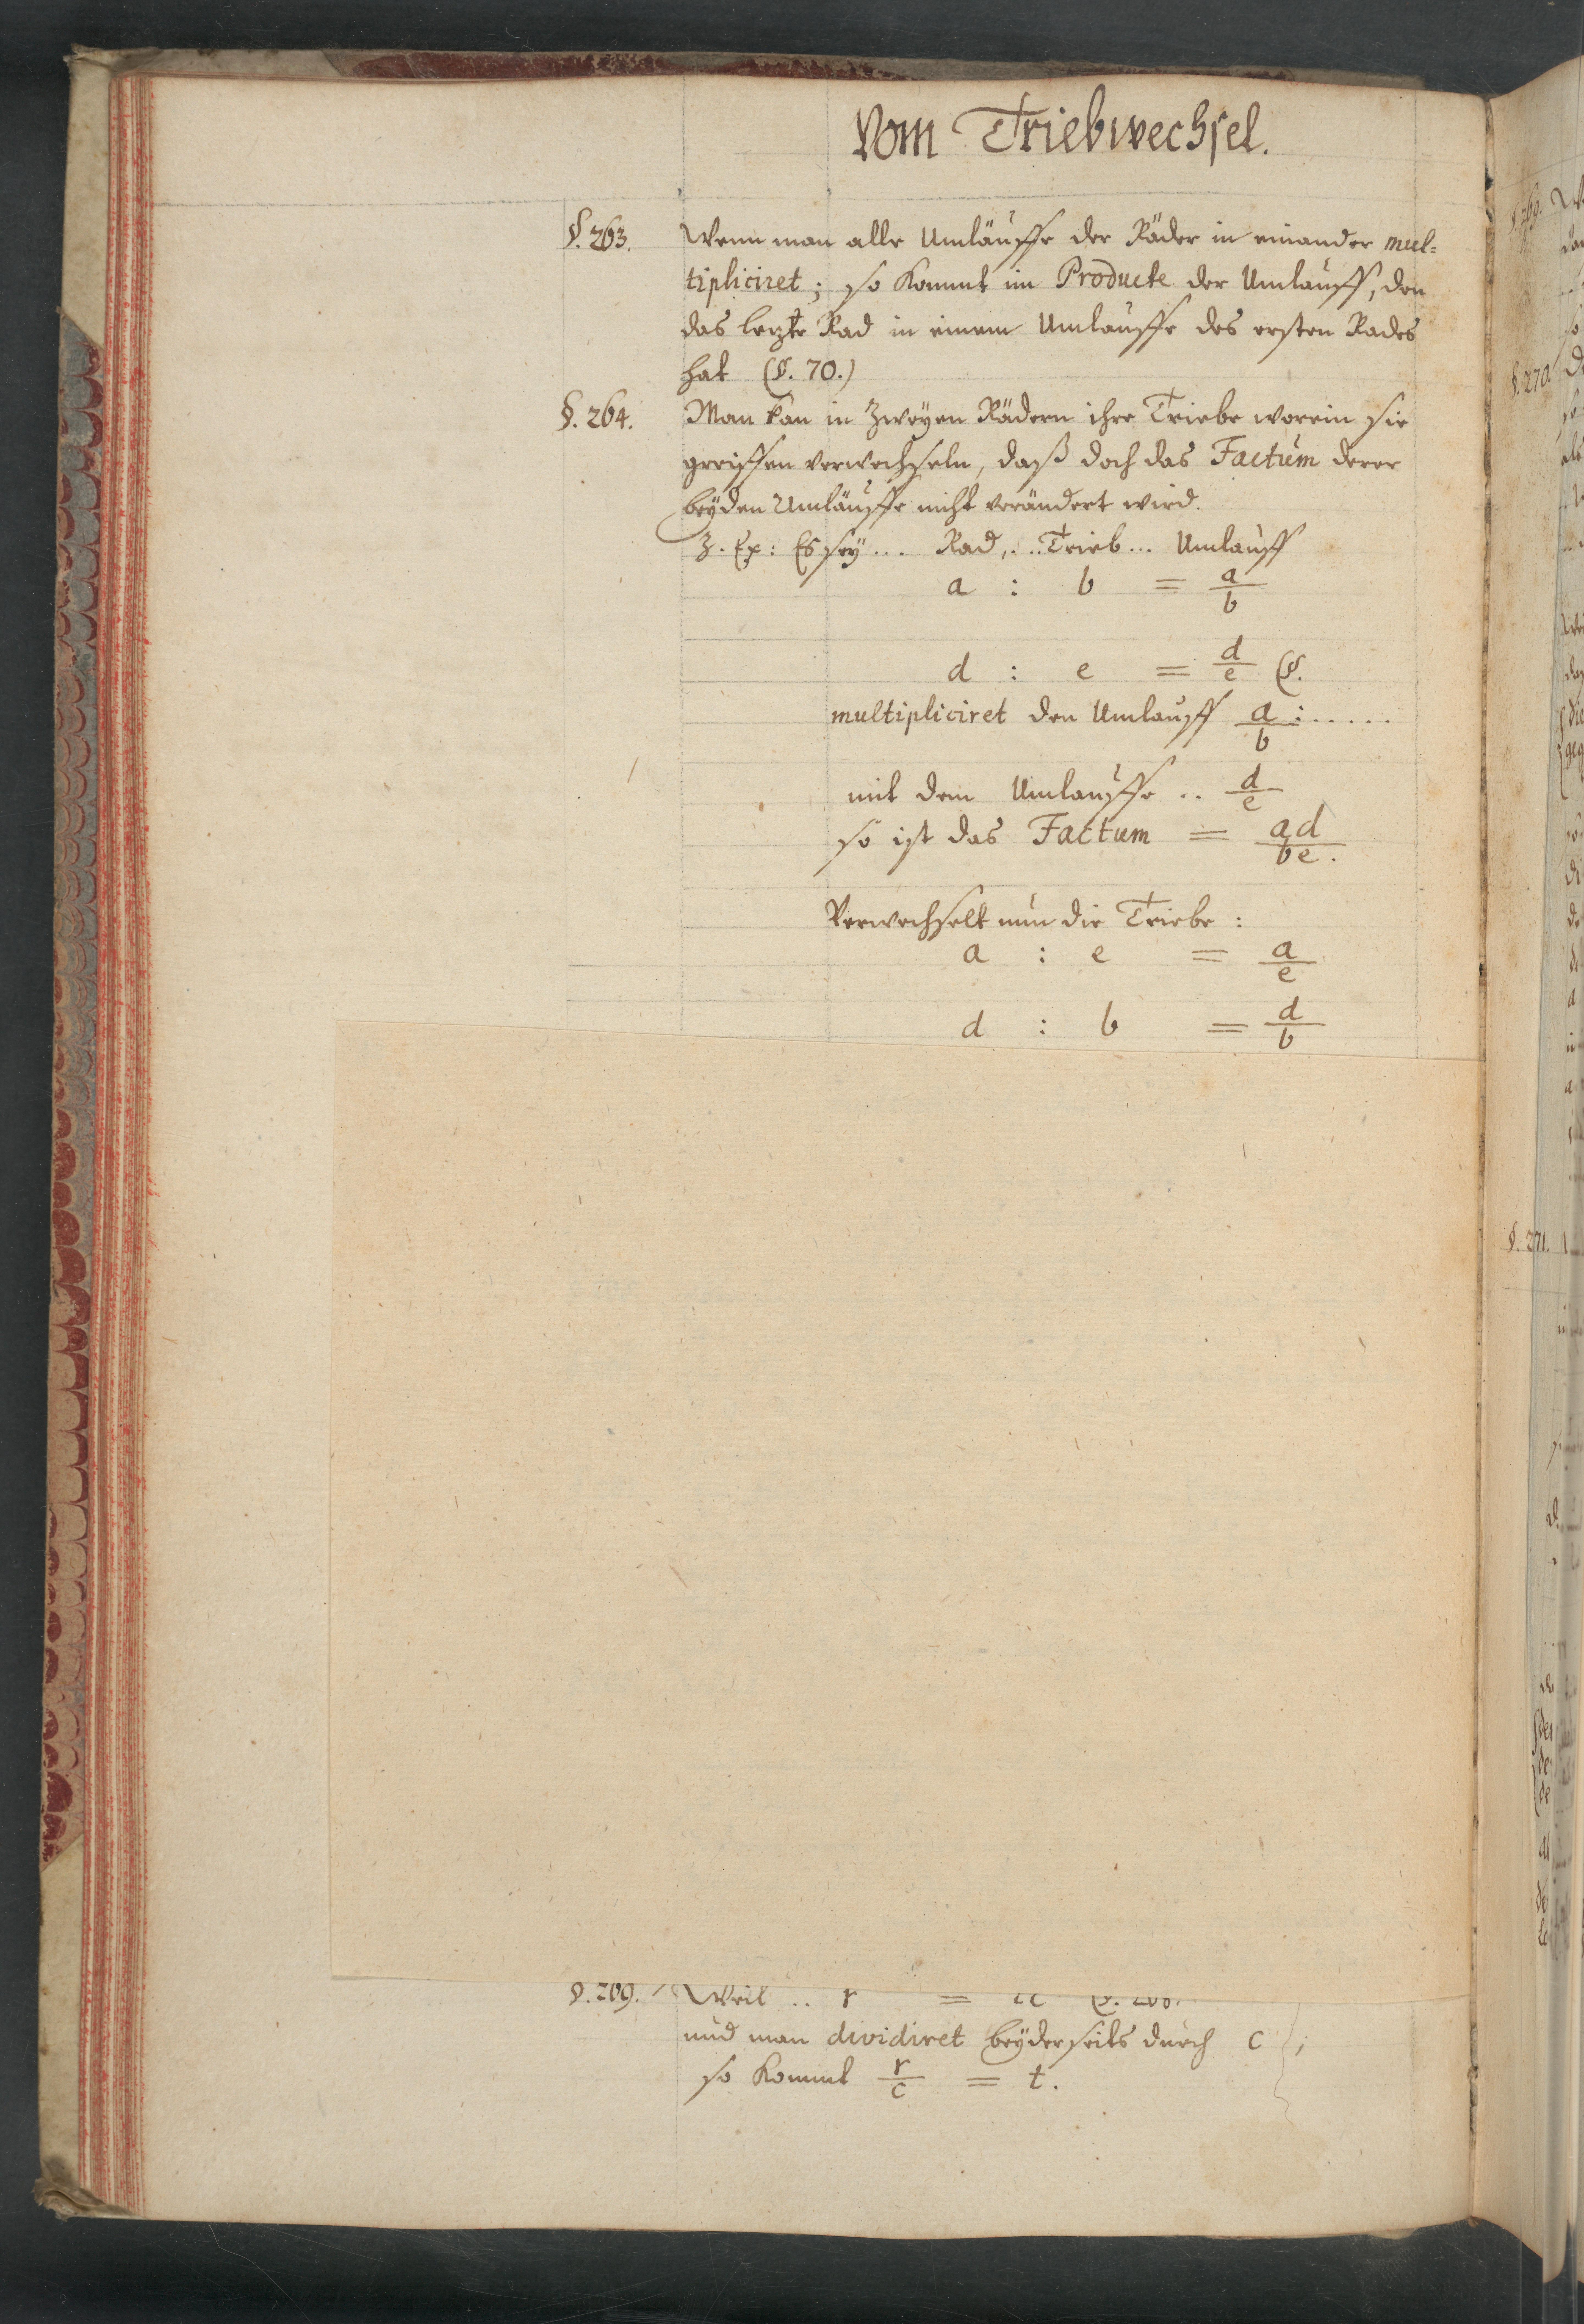 Vom Triebwechsel.
§. 263. Wenn man alle Umläuffe der Räder in einander mul=
tipliciret; so kommt im Producte der Umlauff, den
das lezte Rad in einem Umlauffe des ersten Rades
hat (§. 70.)
§. 264. Man kan in zweÿen Rädern ihre Triebe worein sie
greiffen verwechseln, daß doch das Factum derer
beÿden Umläuffe nicht verändert wird.
Z. Ex: Es seÿ ... Rad, .. Trieb ... Umlauff
a : b = a/b
d : e = d/e §.
multipliciret den Umlauff a/b : .....
mit dem Umlauffe .. d/e
so ist das Factum = ad/be.
Verwechselt nun die Triebe :
a : e = a/e
d : b = d/b
§. 269. Weil .. r =
und man dividiret beÿderseits durch c ;
so kommt r/c = t.